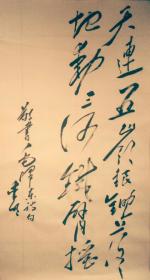 天连五岭银锄落
地动三河铁臂摇
敬書毛澤东詩句